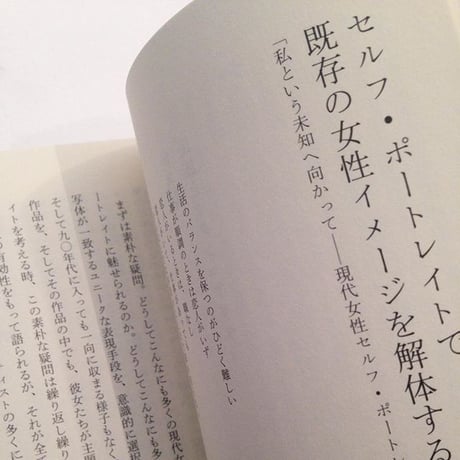 セルフ・ポートレイトで
既存の女性イメージを解体する
「私という未知へ向かって──現代女性セルフ・ポート
生活のバランスを保つのがひどく難しい
仕事が順調のときは恋人がいず
まずは素朴な疑問。どうしてこんなにも多くの現代女
ートレイトに魅せられるのか。どうしてこんなにも多
写体が一致するユニークな表現手段を、意識的に選択
そして九〇年代に入っても一向に収まる様子もなく
作品を、そしてその作品の中でも、彼女たちが主題
イトを考える時、この素朴な疑問は繰り返し繰り
有効性をもって語られるが、それが全て
ィストの多くに